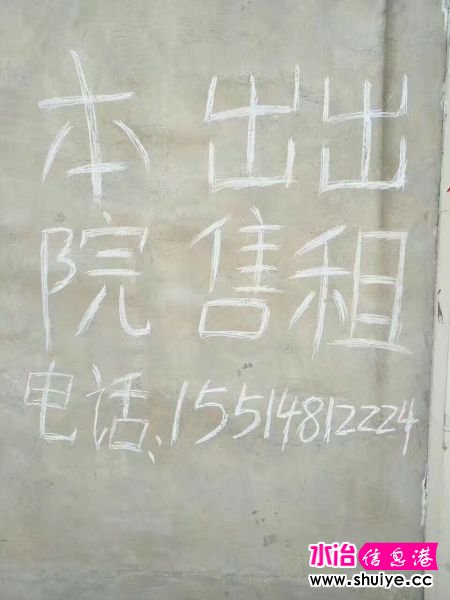 本 出 出
院 售 租
电话、15514812224
水冶信息港
www.shuiye.cc